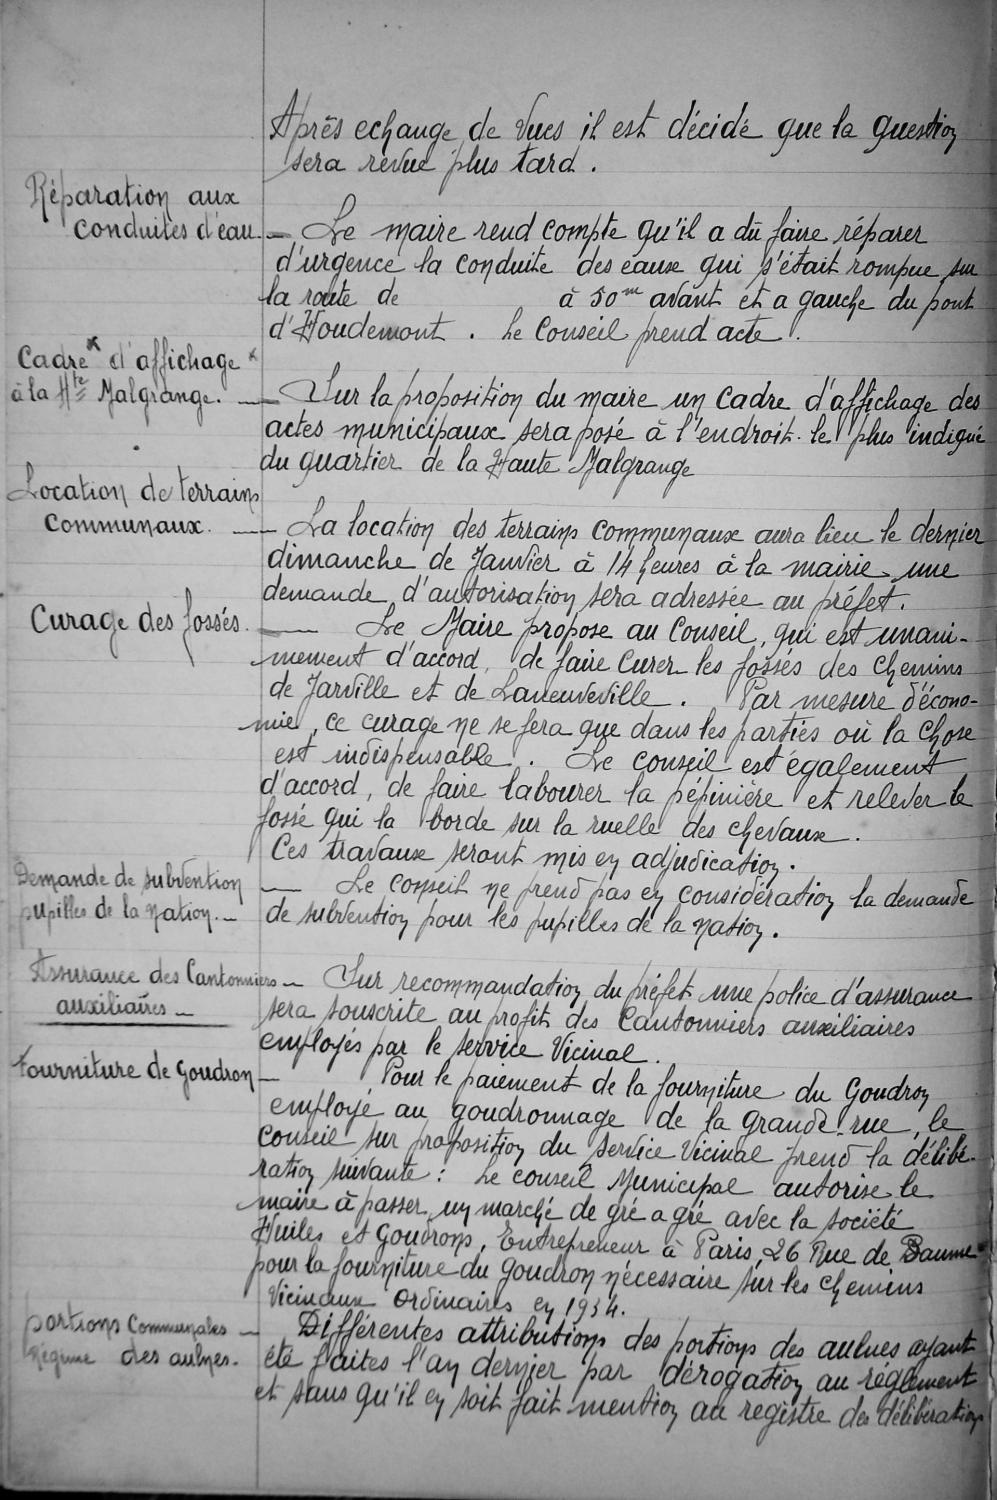 Après echange de vues il est décidé que la question
sera revue plus tard.
Réparation aux
conduites d'eau. — Le maire rend compte qu'il a dû faire réparer
d'urgence la conduite des eaux qui s'était rompue sur
la route de à 50m avant et a gauche du pont
d'Houdemont. Le Conseil prend acte.
Cadre d'affichage
à la Hte Malgrange. — Sur la proposition du maire un cadre d'affichage des
actes municipaux sera posé à l'endroit le plus indiqué
du quartier de la Haute Malgrange
Location de terrains
Communaux. — La location des terrains communaux aura lieu le dernier
dimanche de Janvier à 14 heures à la mairie une
demande d'autorisation sera adressée au préfet.
Curage des fossés. — Le Maire propose au Conseil, qui est unani-
mement d'accord, de faire curer les fossés des chemins
de Jarville et de Laneuveville. Par mesure d'écono-
mie, ce curage ne se fera que dans les parties où la chose
est indispensable. Le conseil est également
d'accord, de faire labourer la pépinière et relever le
fossé qui la borde sur la ruelle des chevaux.
Ces travaux seront mis en adjudication.
Demande de subvention
pupilles de la nation. — Le conseil ne prend pas en considération la demande
de subvention pour les pupilles de la nation.
Assurance des Cantonniers
auxiliaires — Sur recommandation du préfet une police d'assurance
sera souscrite au profit des Cantonniers auxiliaires
employés par le service Vicinal.
Fourniture de Goudron — Pour le paiement de la fourniture du Goudron
employé au goudronnage de la grande-rue, le
conseil sur proposition du service Vicinal prend la délibé-
ration suivante : Le conseil Municipal autorise le
maire à passer un marché de gré a gré avec la société
Huiles et Goudrons, Entrepreneur à Paris, 26 Rue de Baume
pour la fourniture du goudron nécessaire sur les chemins
Vicinaux Ordinaires en 1934.
portions Communales — Différentes attributions des portions des aulnes ayant
Régime des aulnes. été faites l'an dernier par dérogation au réglement
et sans qu'il en soit fait mention au registre des délibérations